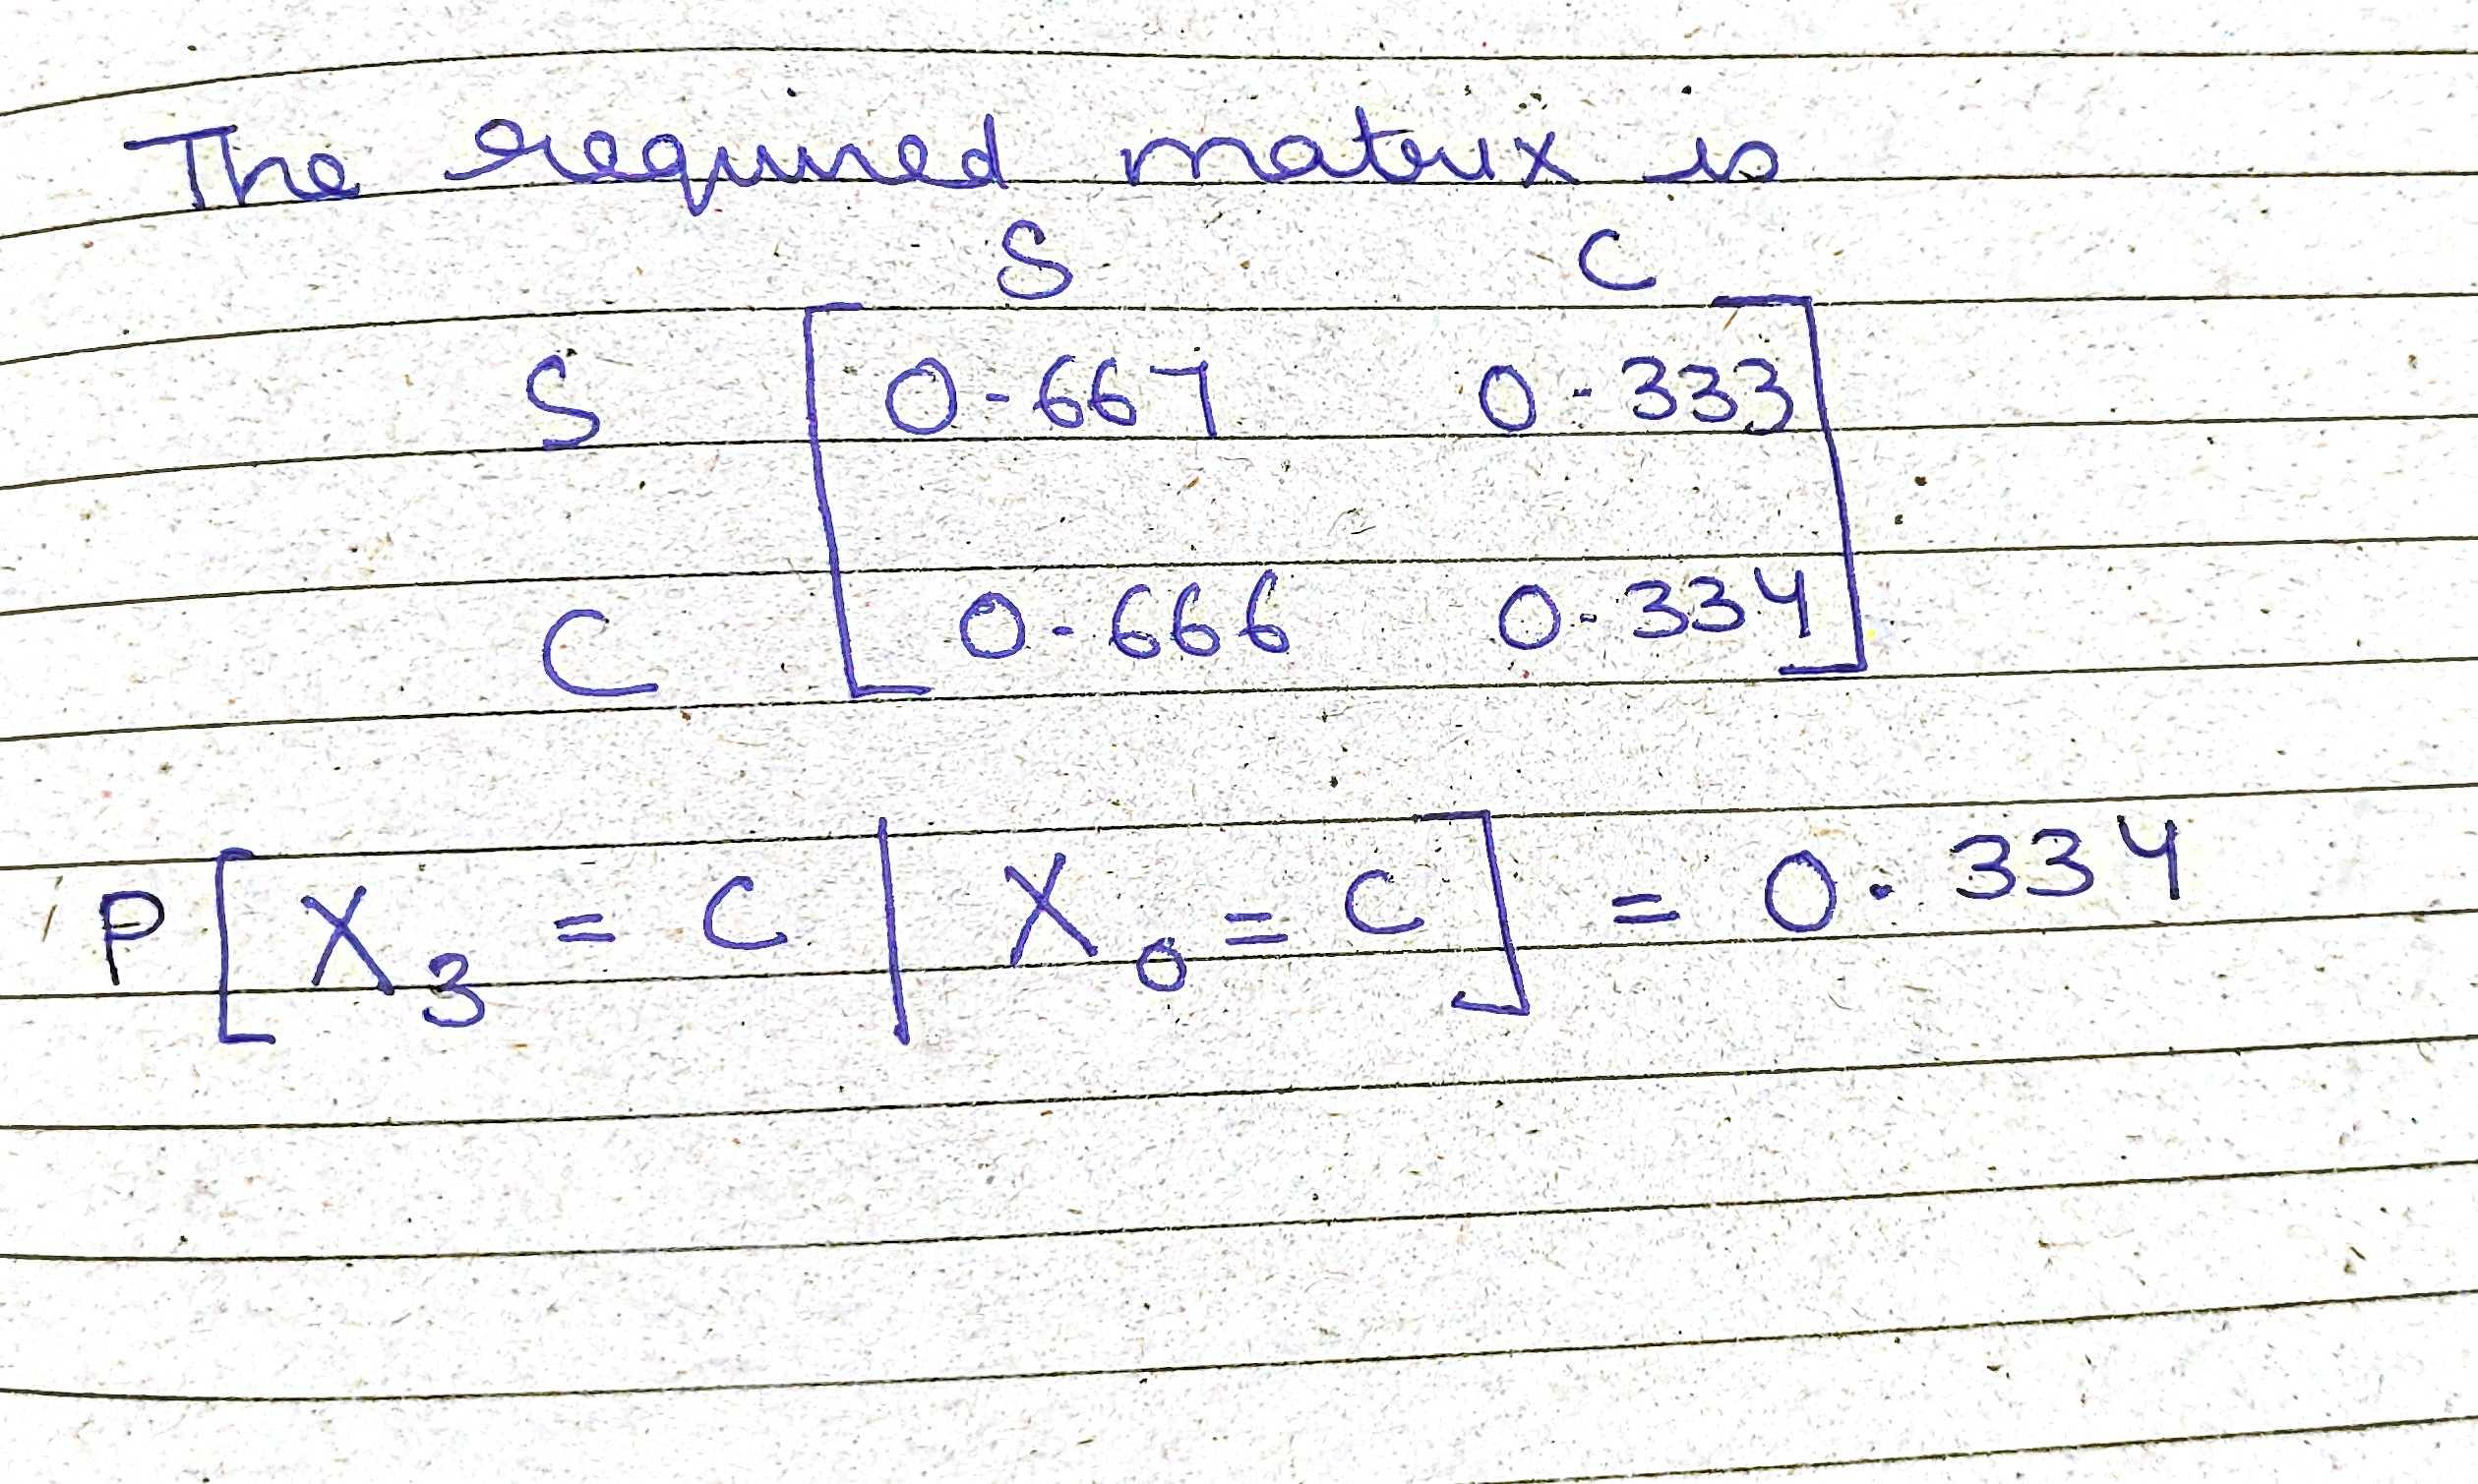 The required matrix is
S C
S [ 0.667 0.333 ]
C [ 0.666 0.334 ]
P[X₃ = C | X₀ = C] = 0.334